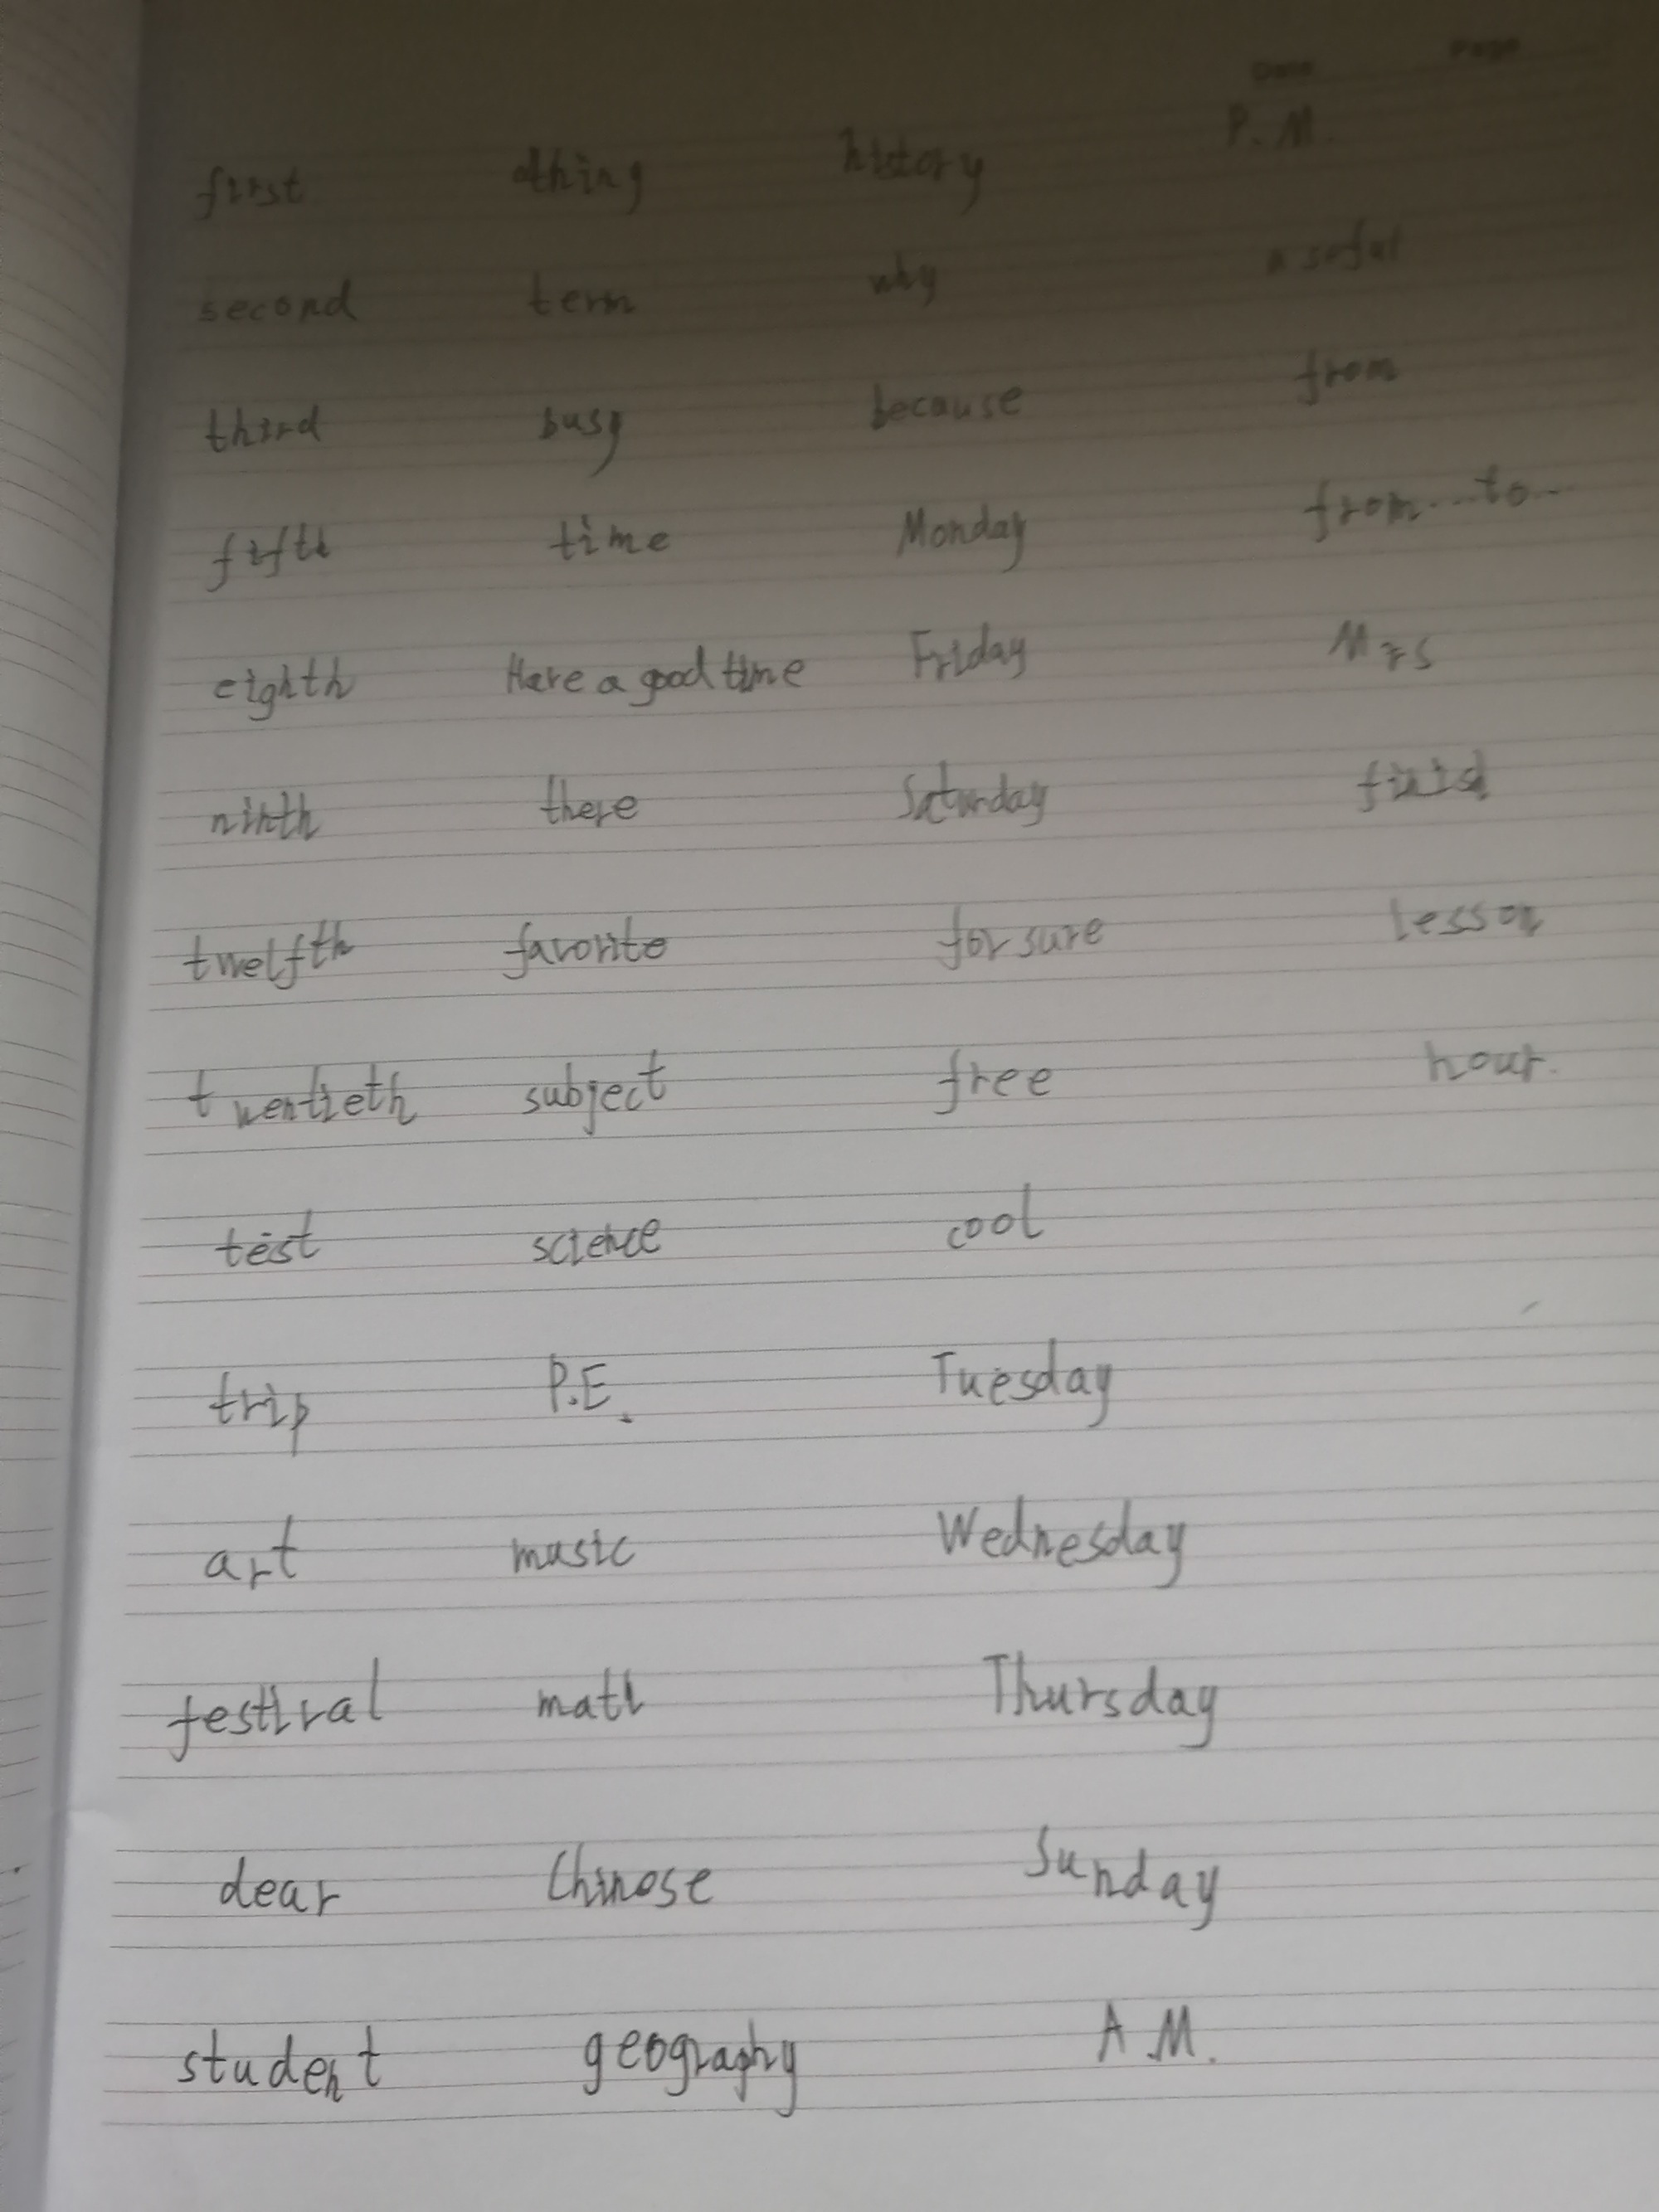 Date Page
P. M.
first thing history
second term why a seful
third busy because from
fifth time Monday from...to...
eighth Have a good time Friday Mrs
ninth there Saturday
twelfth favorite for sure lesson
twentieth subject free hour.
test science cool
trip P.E. Tuesday
art music Wednesday
festival math Thursday
dear Chinose Sunday
student geography A.M.